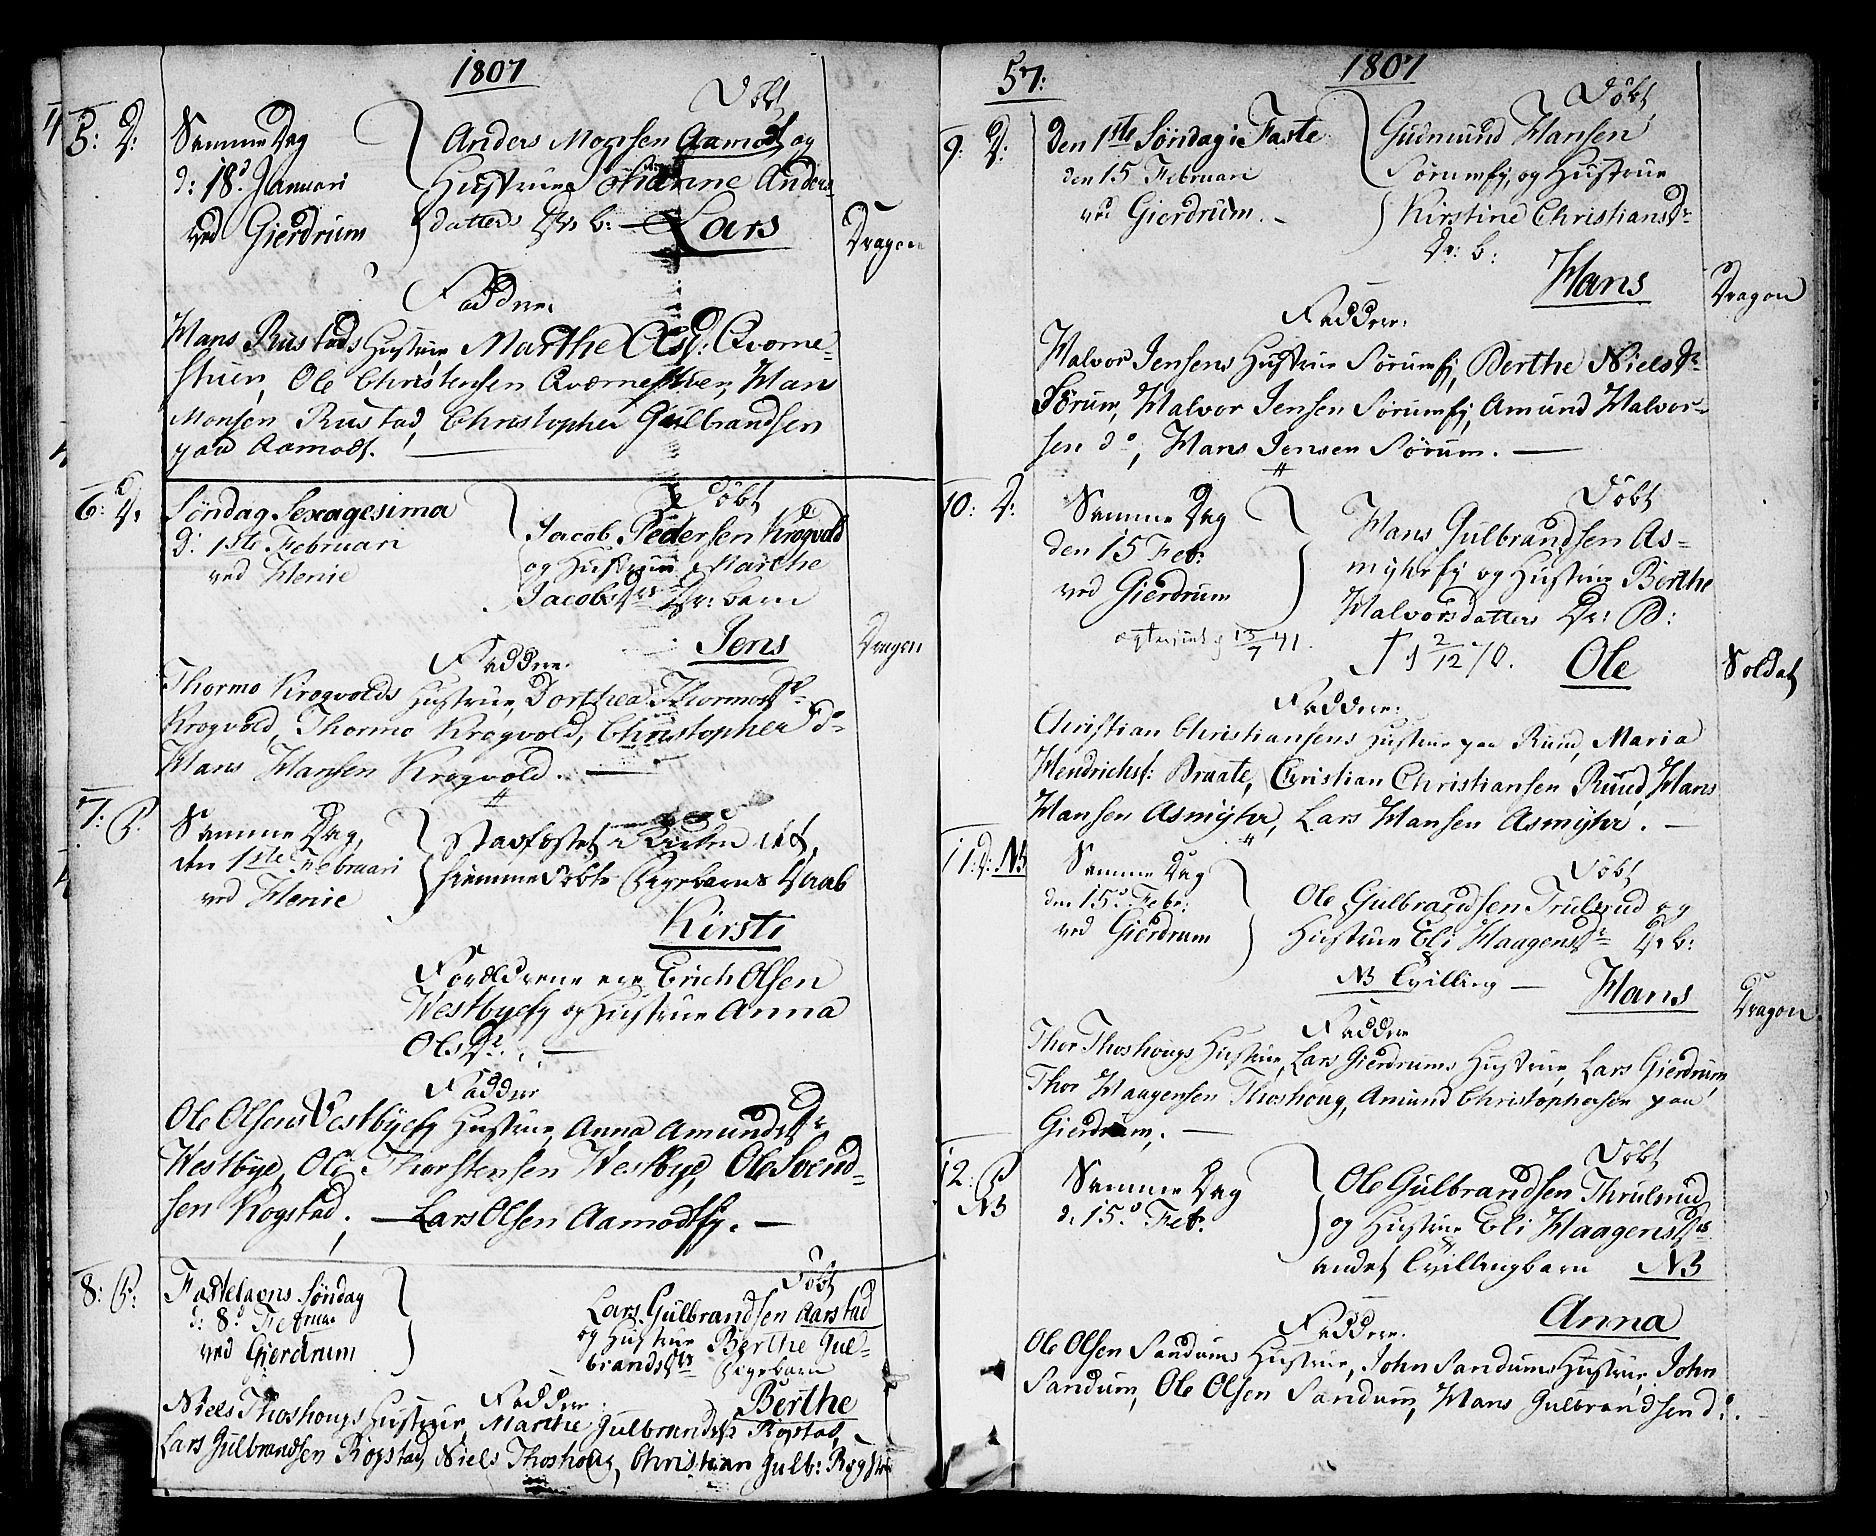 1807
5: D:
Samme Dag
d: 18d Januari
ved Gierdrum
Døbt
Anders Monsen Aamodt og
Hustrue Johanne Anders
datters Dr. b: — Lars
Dragon
Faddere.
Hans Rustads Hustrue, Marthe Olsd: Qværne=
stuen, Ole Christensen Qværnestuen, Hans
Monsen Rustad, Christopher Gulbrandsen
paa Aamodt. —
6: D:
Søndag Sexagesima
d: 1ste Februari
ved Henie
Døbt
Jacob Pedersen Krogvold
og Hustrue Marthe
Jacobsdrs Dr: barn
Jens
Dragon
Faddere.
Thormo Krogvolds Hustrue, Dorthea Thormodsdr
Krogvold, Thormo Krogvold, Christopher do
Hans Hansen Krogvold. —
7: P:
Samme Dag,
den 1ste Februari
ved Henie
Stadfæstet i Kirken et
hiemmedøbt Pigebarns Daab
Kirsti
Forældrene ere Erich Olsen
Westbyeeje og Hustrue Anna
Olsdr. —
Fadder
Ole Olsens Vestbyeeje Hustrue, Anna Amundsdr
Westbye, Ole Thorstensen Westbye, Ole Svend=
sen Kogstad, — Lars Olsen Aamodtej. —
8: P:
Fastelavns Søndag
d: 8d Februar
ved Gierdrum
Døbt
Lars Gulbrandsen Aarstad
og Hustrue Berthe Gul=
brandsdrs Pigebarn
Berthe
Faddere.
Niels Thoshougs Hustrue, Marthe Gulbrandsdr Kogstad,
Lars Gulbrandsen Kogstad, Niels Thoshoug, Christian Gulb: Kogstad
57:
1807
9: D:
Den 1ste Søndag i Faste
den 15 Februari
ved Gierdrum. —
Døbt
Gudmund Hansen
Sørumej, og Hustrue
Kirstine Christiansdr
Dr: b:
Hans
Dragon
Faddere:
Halvor Jensens Hustrue Sørumej, Berthe Nielsdr
Sørum, Halvor Jensen Sørumej, Amund Halvor=
sen do, Hans Jensen Sørum. —
10: D:
Samme Dag
den 15 Febr:
ved Gierdrum
13/7 41.
Døbt
Hans Gulbrandsen As=
myhrej og Hustrue Berthe
Halvorsdatters Dr: B:
† d 2/12 70.
Ole
Soldat
Faddere:
Christian Christiansens Hustrue paa Ruud, Maria
Hendrichsd: Braate, Christian Christiansen Ruud, Hans
Hansen Asmyhr, Lars Hansen Asmyhr. —
11: D: NB
Samme Dag
den 15d Febr:
ved Gierdrum
Døbt
Ole Gulbrandsen Trulsrud og
Hustrue Eli Haagensdr Dr b:
NB Tvilling — Hans
Dragon.
Faddere
Thor Thoshougs Hustrue, Lars Gierdrums Hustrue, Lars Gierdrum,
Thor Haagensen Thoshoug, Amund Christophersen paa
Gierdrum. —
12: P
NB
Samme Dag
d: 15d Febr.
Døbt
Ole Gulbrandsen Thrulsrud
og Hustrue Eli Haagensdrs
andet Tvillingbarn NB
Anna
Faddere.
Ole Olsen Sandums Hustrue, John Sandums Hustrue, John
Sandum, Ole Olsen Sandum, Hans Gulbrandsen do.